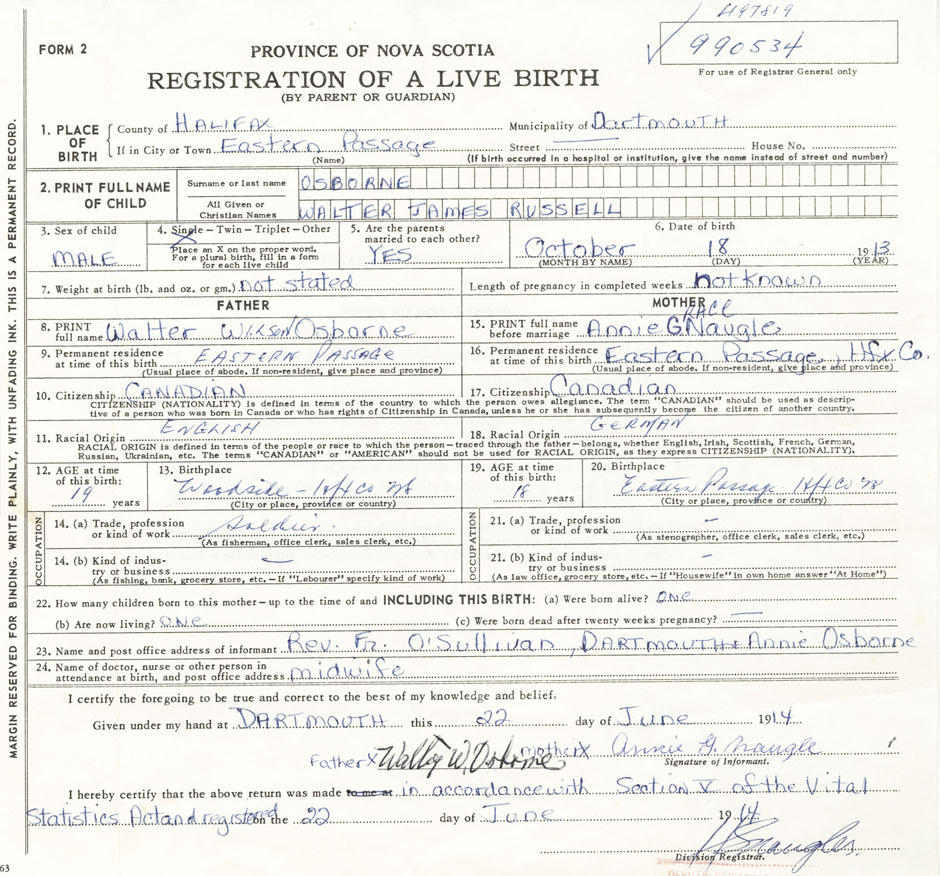 497819
990534
For use of Registrar General only
FORM 2
PROVINCE OF NOVA SCOTIA
REGISTRATION OF A LIVE BIRTH
(BY PARENT OR GUARDIAN)
MARGIN RESERVED FOR BINDING. WRITE PLAINLY, WITH UNFADING INK. THIS IS A PERMANENT RECORD.
1. PLACE OF BIRTH County of HALIFAX Municipality of DartMOUTH
If in City or Town Eastern Passage Street House No.
(Name) (If birth occurred in a hospital or institution, give the name instead of street and number)
2. PRINT FULL NAME OF CHILD Surname or last name OSBORNE
All Given or Christian Names WALTER JAMES RUSSELL
3. Sex of child 4. Single – Twin – Triplet – Other 5. Are the parents married to each other? 6. Date of birth
MALE X Place an X on the proper word. For a plural birth, fill in a form for each live child YES October 18 1913
(MONTH BY NAME) (DAY) (YEAR)
7. Weight at birth (lb. and oz. or gm.) not stated Length of pregnancy in completed weeks not Known
FATHER MOTHER
8. PRINT full name Walter WILSON Osborne 15. PRINT full name before marriage Annie G. Naugle
9. Permanent residence at time of this birth EASTERN PASSAGE 16. Permanent residence at time of this birth Eastern Passage, Hfx Co.
(Usual place of abode. If non-resident, give place and province) (Usual place of abode. If non-resident, give place and province)
10. Citizenship CANADIAN 17. Citizenship Canadian
CITIZENSHIP (NATIONALITY) is defined in terms of the country to which the person owes allegiance. The term "CANADIAN" should be used as descrip-
tive of a person who was born in Canada or who has rights of Citizenship in Canada, unless he or she has subsequently become the citizen of another country.
11. Racial Origin ENGLISH 18. Racial Origin GERMAN
RACIAL ORIGIN is defined in terms of the people or race to which the person – traced through the father – belongs, whether English, Irish, Scottish, French, German,
Russian, Ukrainian, etc. The terms "CANADIAN" or "AMERICAN" should not be used for RACIAL ORIGIN, as they express CITIZENSHIP (NATIONALITY).
12. AGE at time of this birth: 19 years 13. Birthplace Woodside – Hfx Co NS 19. AGE at time of this birth: 18 years 20. Birthplace Eastern Passage Hfx Co NS
(City or place, province or country) (City or place, province or country)
OCCUPATION OCCUPATION
14. (a) Trade, profession or kind of work Soldier. 21. (a) Trade, profession or kind of work –
(As fisherman, office clerk, sales clerk, etc.) (As stenographer, office clerk, sales clerk, etc.)
14. (b) Kind of indus- try or business – 21. (b) Kind of indus- try or business –
(As fishing, bank, grocery store, etc. – If "Labourer" specify kind of work) (As law office, grocery store, etc. – If "Housewife" in own home answer "At Home")
22. How many children born to this mother – up to the time of and INCLUDING THIS BIRTH: (a) Were born alive? one
(b) Are now living? one (c) Were born dead after twenty weeks pregnancy? –
23. Name and post office address of informant Rev. Fr. O'Sullivan, DARTMOUTH + Annie Osborne
24. Name of doctor, nurse or other person in attendance at birth, and post office address midwife
I certify the foregoing to be true and correct to the best of my knowledge and belief.
Given under my hand at DARTMOUTH this 22 day of June 1914
Father X Walter W. Osborne mother X Annie G. Naugle
Signature of Informant.
I hereby certify that the above return was made to me at in accordance with Section V of the Vital
Statistics Act and registered on the 22 day of June 1914
Division Registrar.
63